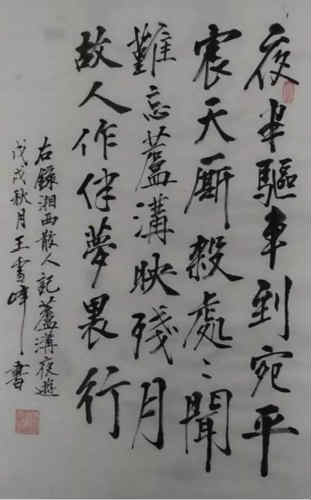 夜半驅車到宛平
宸天厮殺處々聞
難忘蘆溝映殘月
故人作伴夢畏行
右錄湘西散人記蘆溝夜遊
戊戌秋月王雪峰書